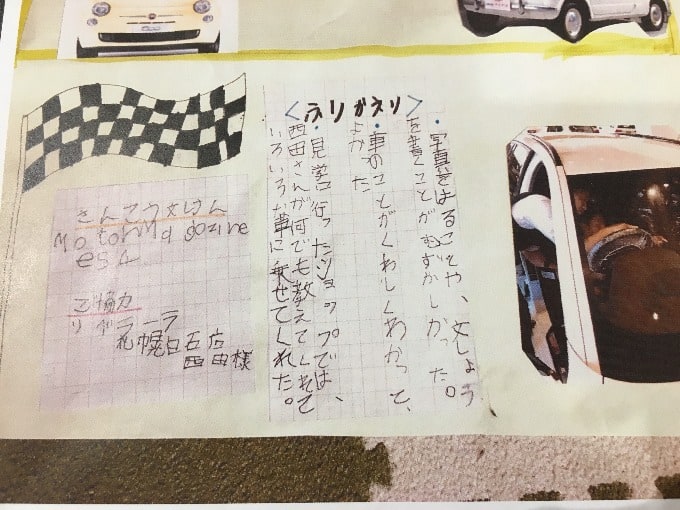 <ふりかえり>
・写真をはることや、文しょう
を書くことがむずかしかった。
・車のことがくわしくわかって、
よかった。
・見学に行ったショップでは、
西田さんが何でも教えてくれて
いろいろな車に乗せてくれた。
さんこう文けん
Motor Magazine
es4
ご協力
リベラーラ
札幌白石店
西田様